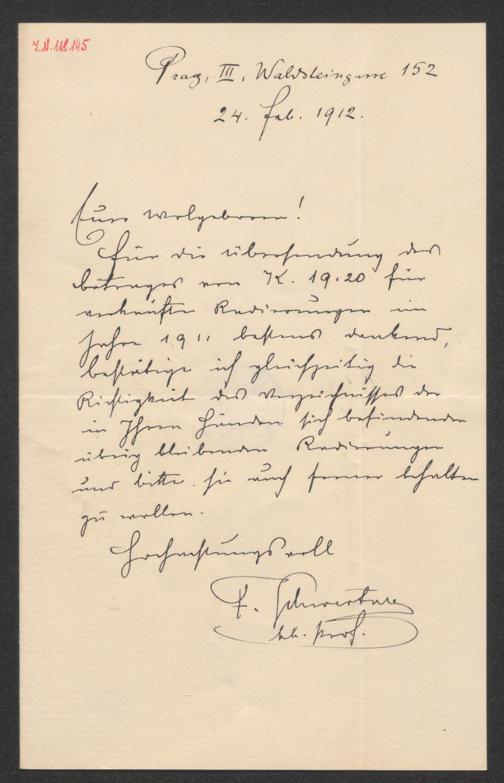 J.N. 118.145
Prag, III, Waldsteingasse 152
24. Feb. 1912.
Euer Wolgeboren!
Für die Übersendung des
betrages von K. 19.20 für
verkaufte Radierungen im
Jahre 1911 bestens dankend,
bestätige ich gleichzeitig die
Richtigkeit des Verzeichnisses der
in Ihren Händen sich befindenden
übrig bleibenden Radierungen
und bitte sie auch ferner behalten
zu wollen.
Hochachtungsvoll
F.
Prof.